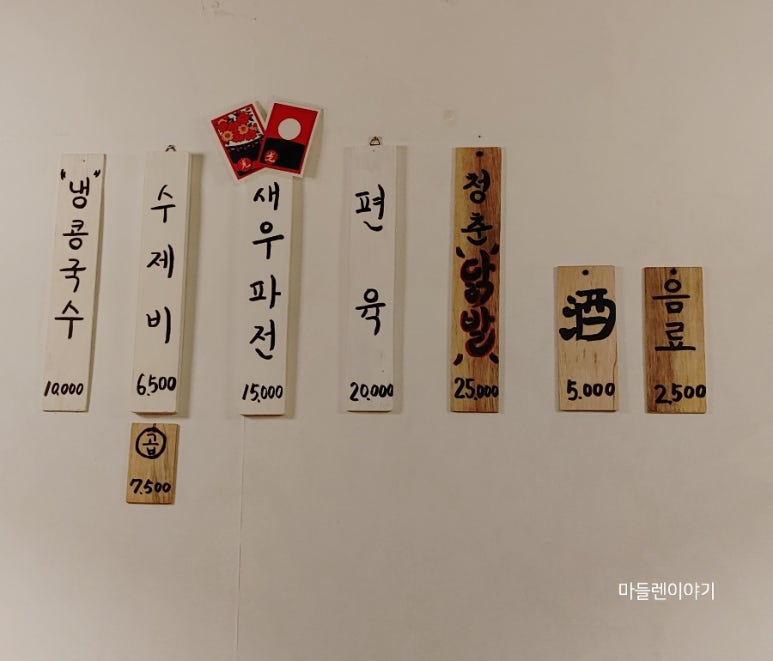 "냉"콩국수
10,000
수제비
6,500
곱
7,500
光
光
새우파전
15,000
편육
20,000
청춘'닭발'
25,000
酒
5.000
음료
2,500
마들렌이야기